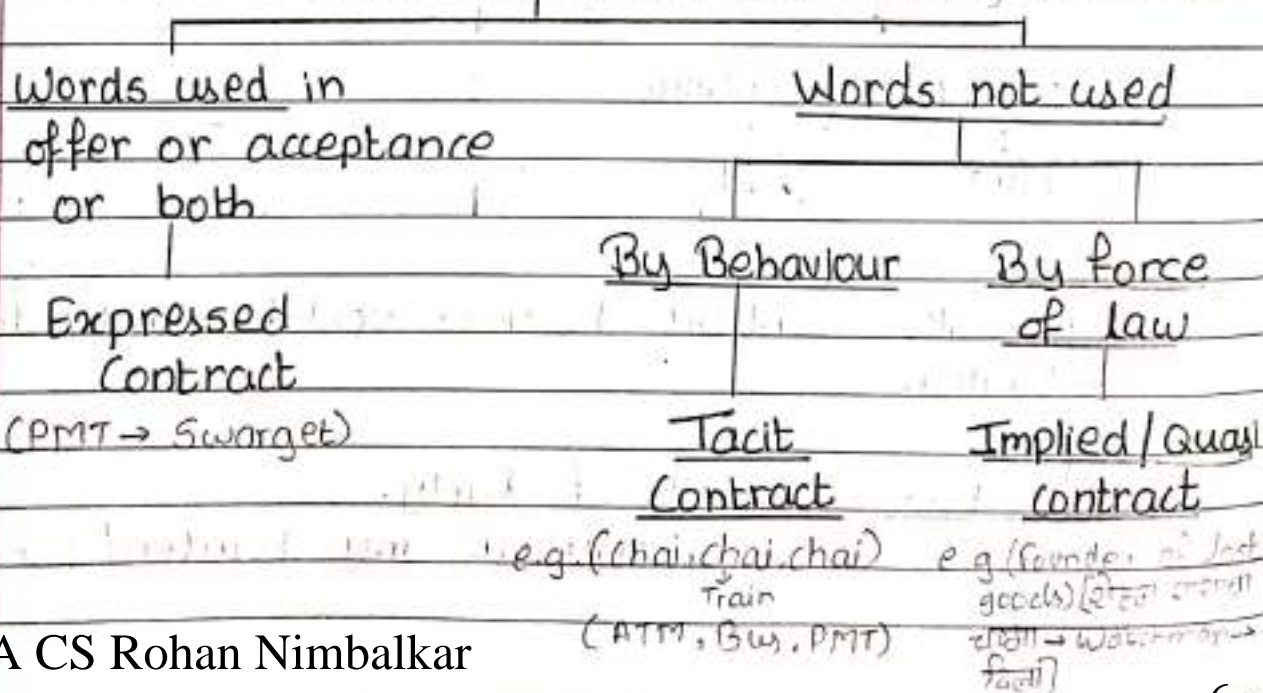 Words used in
offer or acceptance
or both
Expressed
Contract
(PMT → Swarget)
Words not used
By Behaviour
Tacit
Contract
e.g. (chai.chai.chai)
Train
(ATM, Bus, PMT)
By force
of law
Implied/Quasi
contract
e g (founder of lost
goods)
A CS Rohan Nimbalkar